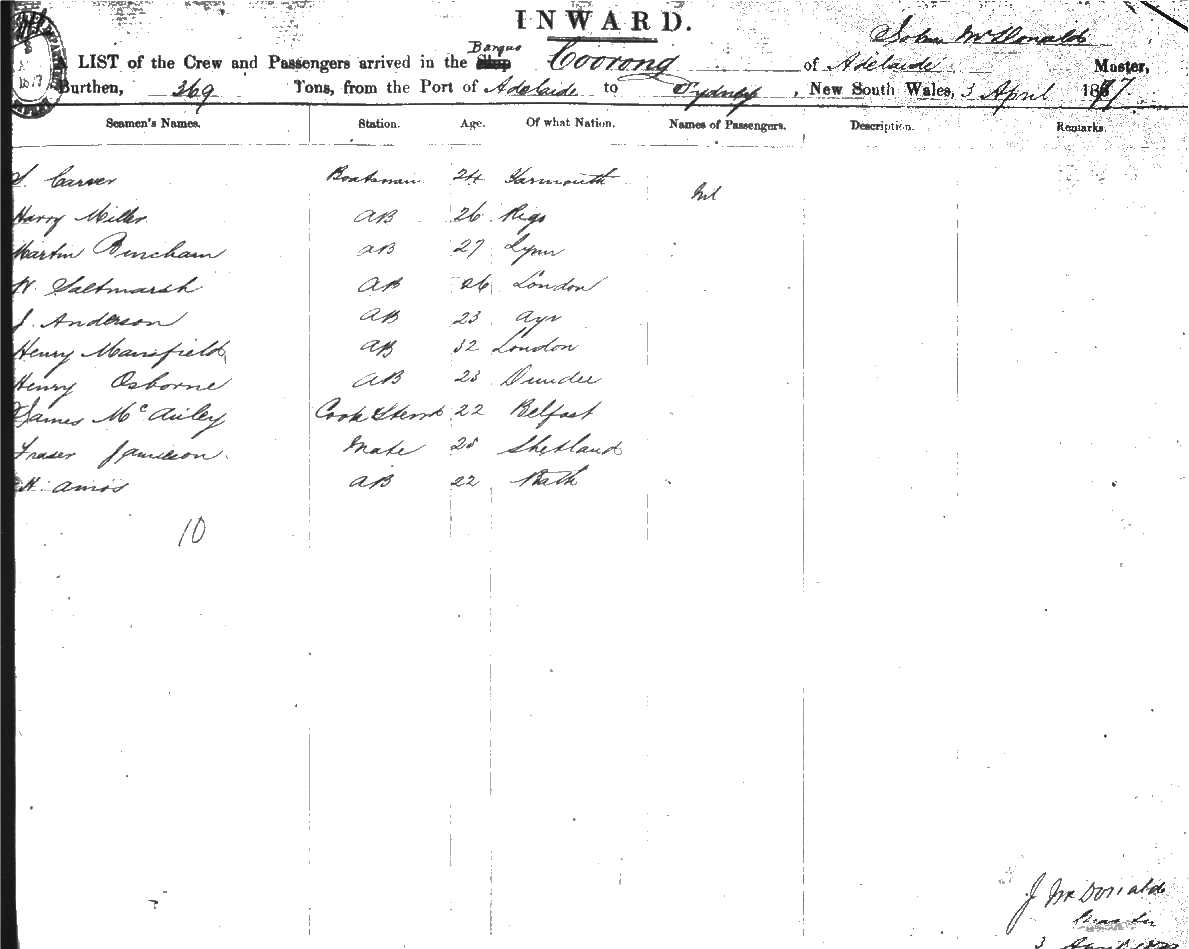 INWARD.
John McDonald
A LIST of the Crew and Passengers arrived in the Barque Ship Coorong of Adelaide Master,
Burthen, 369 Tons, from the Port of Adelaide to Sydney, New South Wales, 3 April 1877
Seamen's Names. Station. Age. Of what Nation. Names of Passengers. Description. Remarks.
S. Carver Boatsman 24 Yarmouth
Nil
Harry Miller AB 26 Riga
Martin Bincham AB 27 Lynn
W. Saltmarsh AB 26 London
J. Anderson AB 23 Ayr
Henry Mansfield AB 32 London
Henry Osborne AB 23 Dundee
James McAuley Cook & Stewd 22 Belfast
Fraser Jamieson Mate 28 Shetland
H. Amos AB 22 Bath
10
J McDonald
Master
3 April